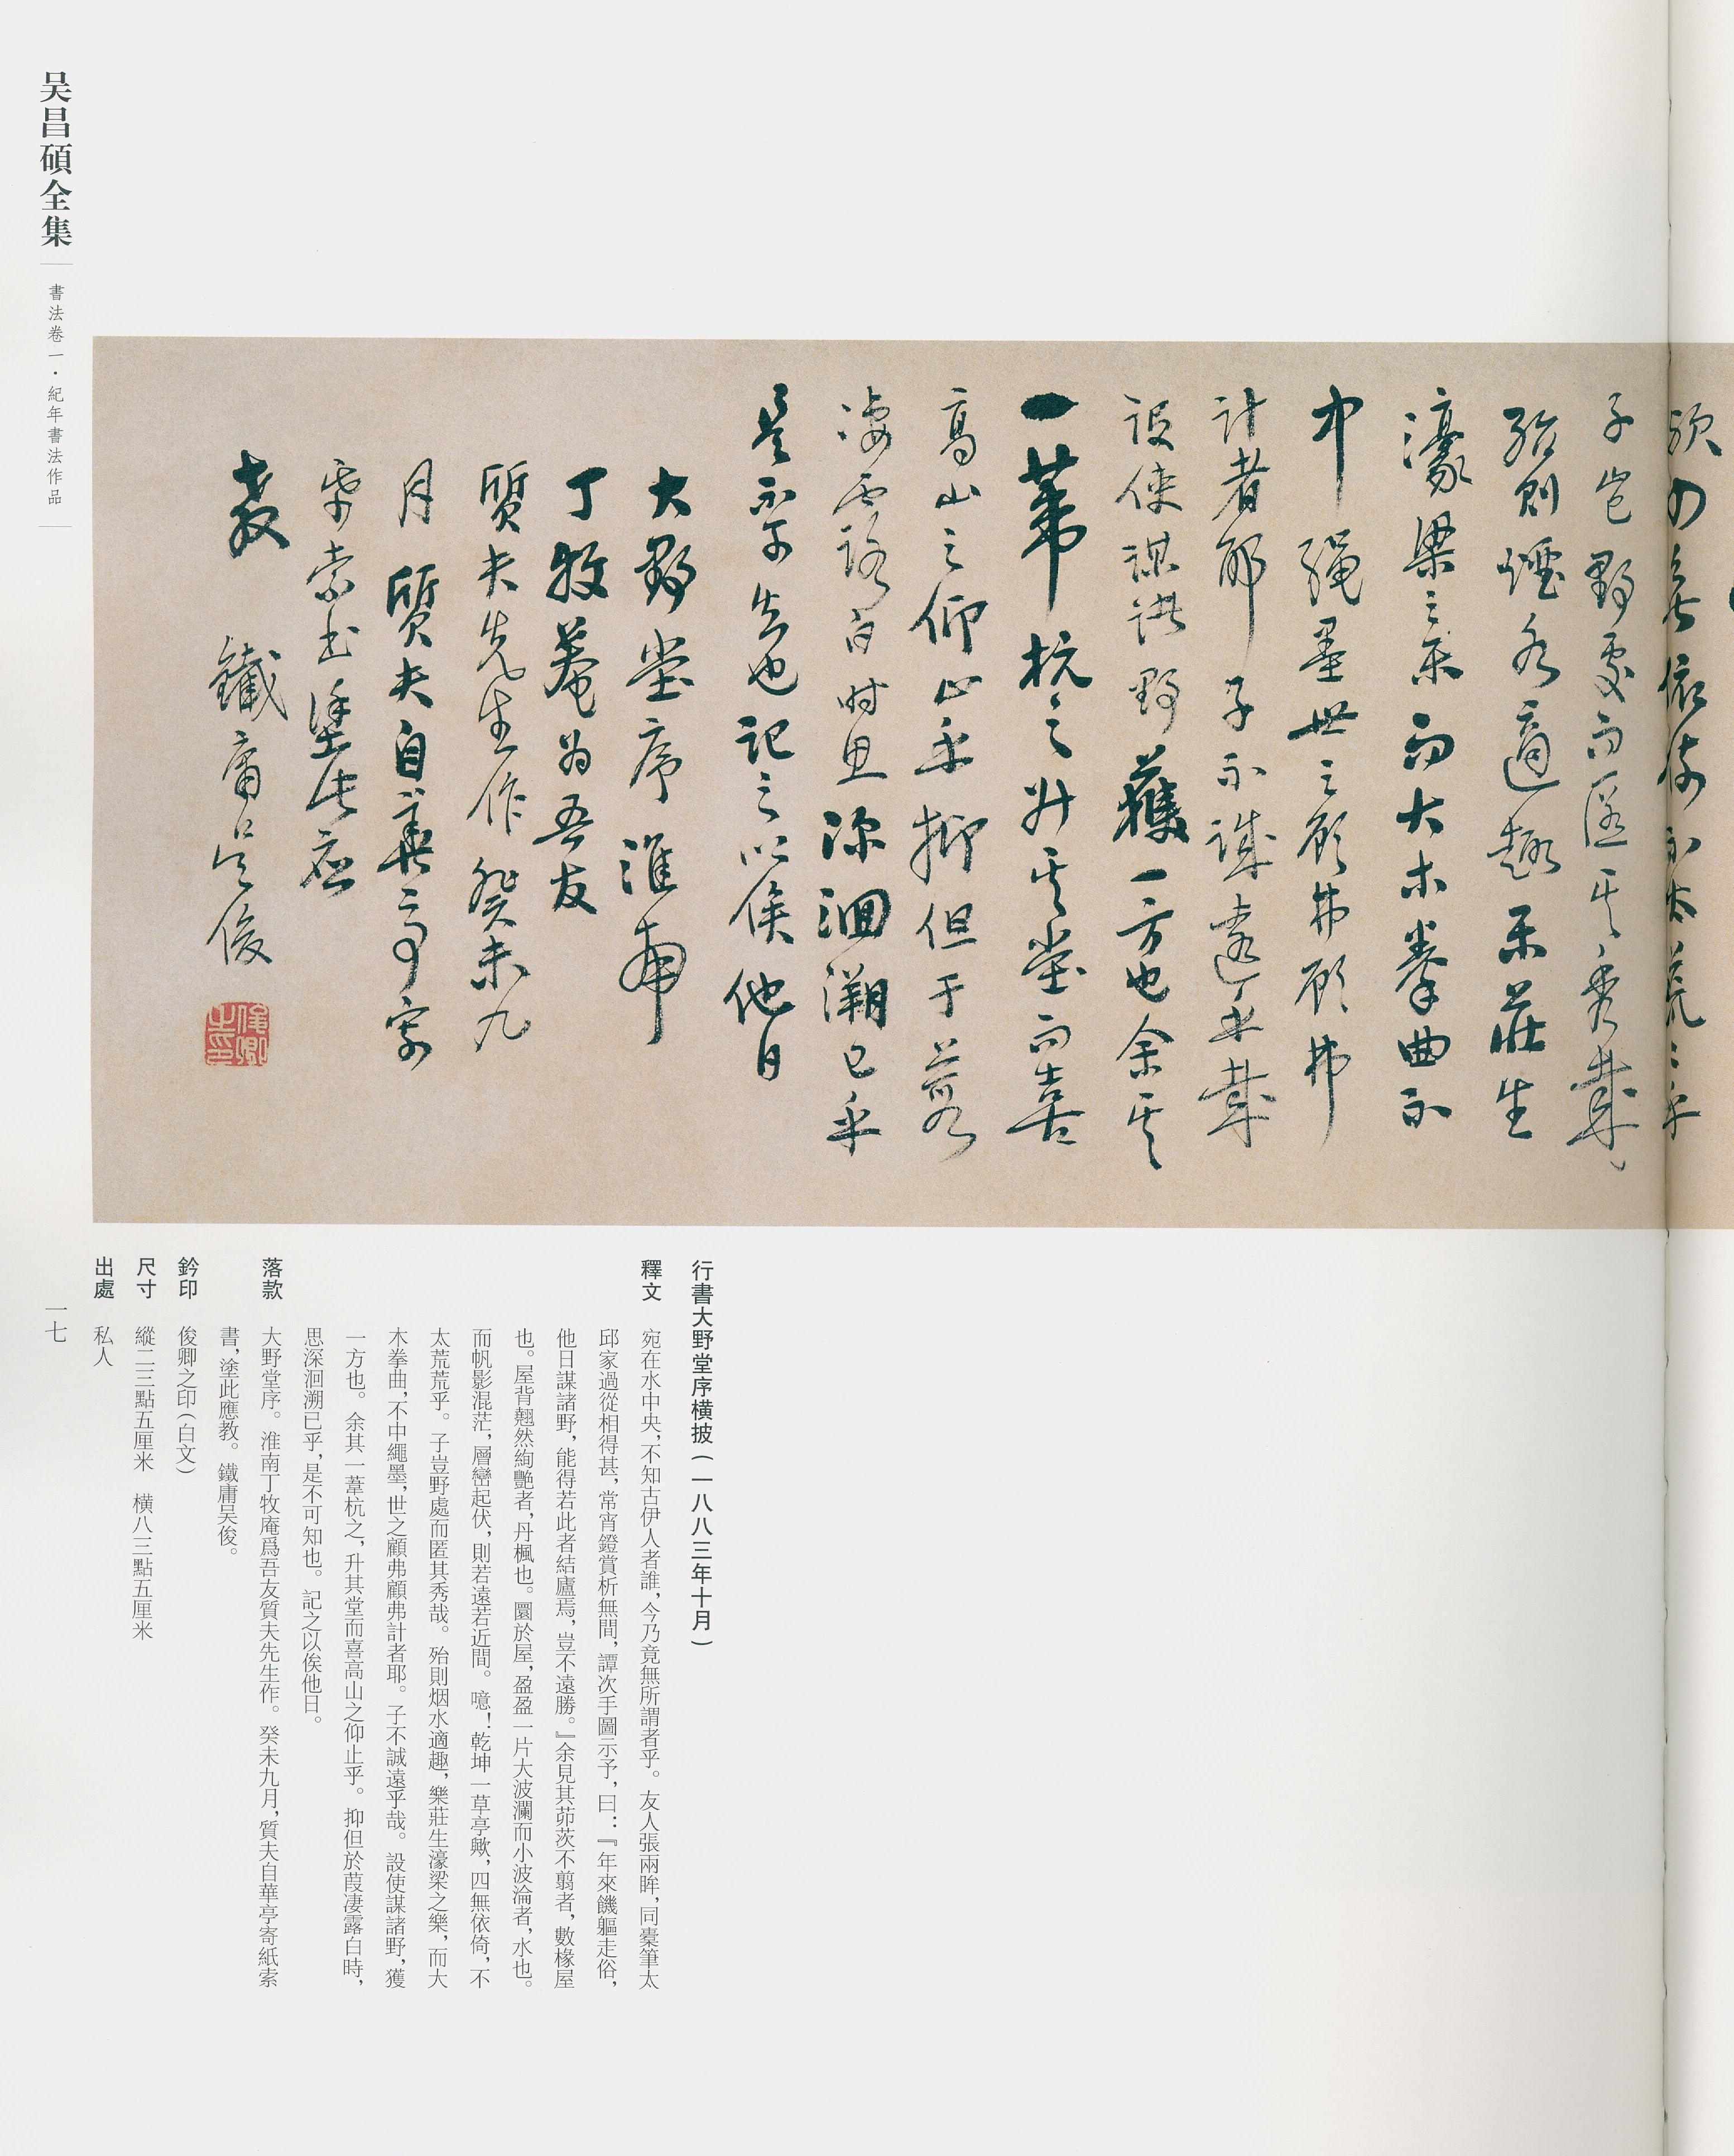 吴昌碩全集
書法卷一·紀年書法作品
歟四無依倚不太荒二乎
子豈野處而匿其秀哉
殆則煙水適趣樂莊生
濠梁之樂而大木拳曲不
中繩墨世之顧弗顧弗
計者耶子不誠遠乎哉
設使謀諸野獲一方也余其
一葦杭之升其堂而喜
高山之仰止乎抑但于葭
淒露白時思深洄溯已乎
是不可知也記之以俟他日
大野堂序淮南
丁牧菴為吾友
質夫先生作癸未九
月質夫自華亭寄
紙索書塗此應
教 鐵庸吳俊
俊卿之印
行書大野堂序横披(一八八三年十月)
釋文 宛在水中央,不知古伊人者誰,今乃竟無所謂者乎。友人張兩眸,同臺筆太
邱家過從相得甚,常宵鐙賞析無間,譚次手圖示予,曰:『年來饑軀走俗,
他日謀諸野,能得若此者結廬焉,豈不遠勝。』余見其茆茨不翦者,數椽屋
也。屋背翹然絢艷者,丹楓也。圜於屋,盈盈一片大波瀾而小波淪者,水也。
而帆影混茫,層巒起伏,則若遠若近間。噫!乾坤一草亭歟,四無依倚,不
太荒荒乎。子豈野處而匿其秀哉。殆則烟水適趣,樂莊生濠梁之樂,而大
木拳曲,不中繩墨,世之顧弗顧弗計者耶。子不誠遠乎哉。設使謀諸野,獲
一方也。余其一葦杭之,升其堂而喜高山之仰止乎。抑但於葭淒露白時,
思深洄溯已乎,是不可知也。記之以俟他日。
落款 大野堂序。淮南丁牧庵爲吾友質夫先生作。癸未九月,質夫自華亭寄紙索
書,塗此應教。鐵庸吴俊。
鈐印 俊卿之印(白文)
尺寸 縱二三點五厘米 横八三點五厘米
出處 私人
一七